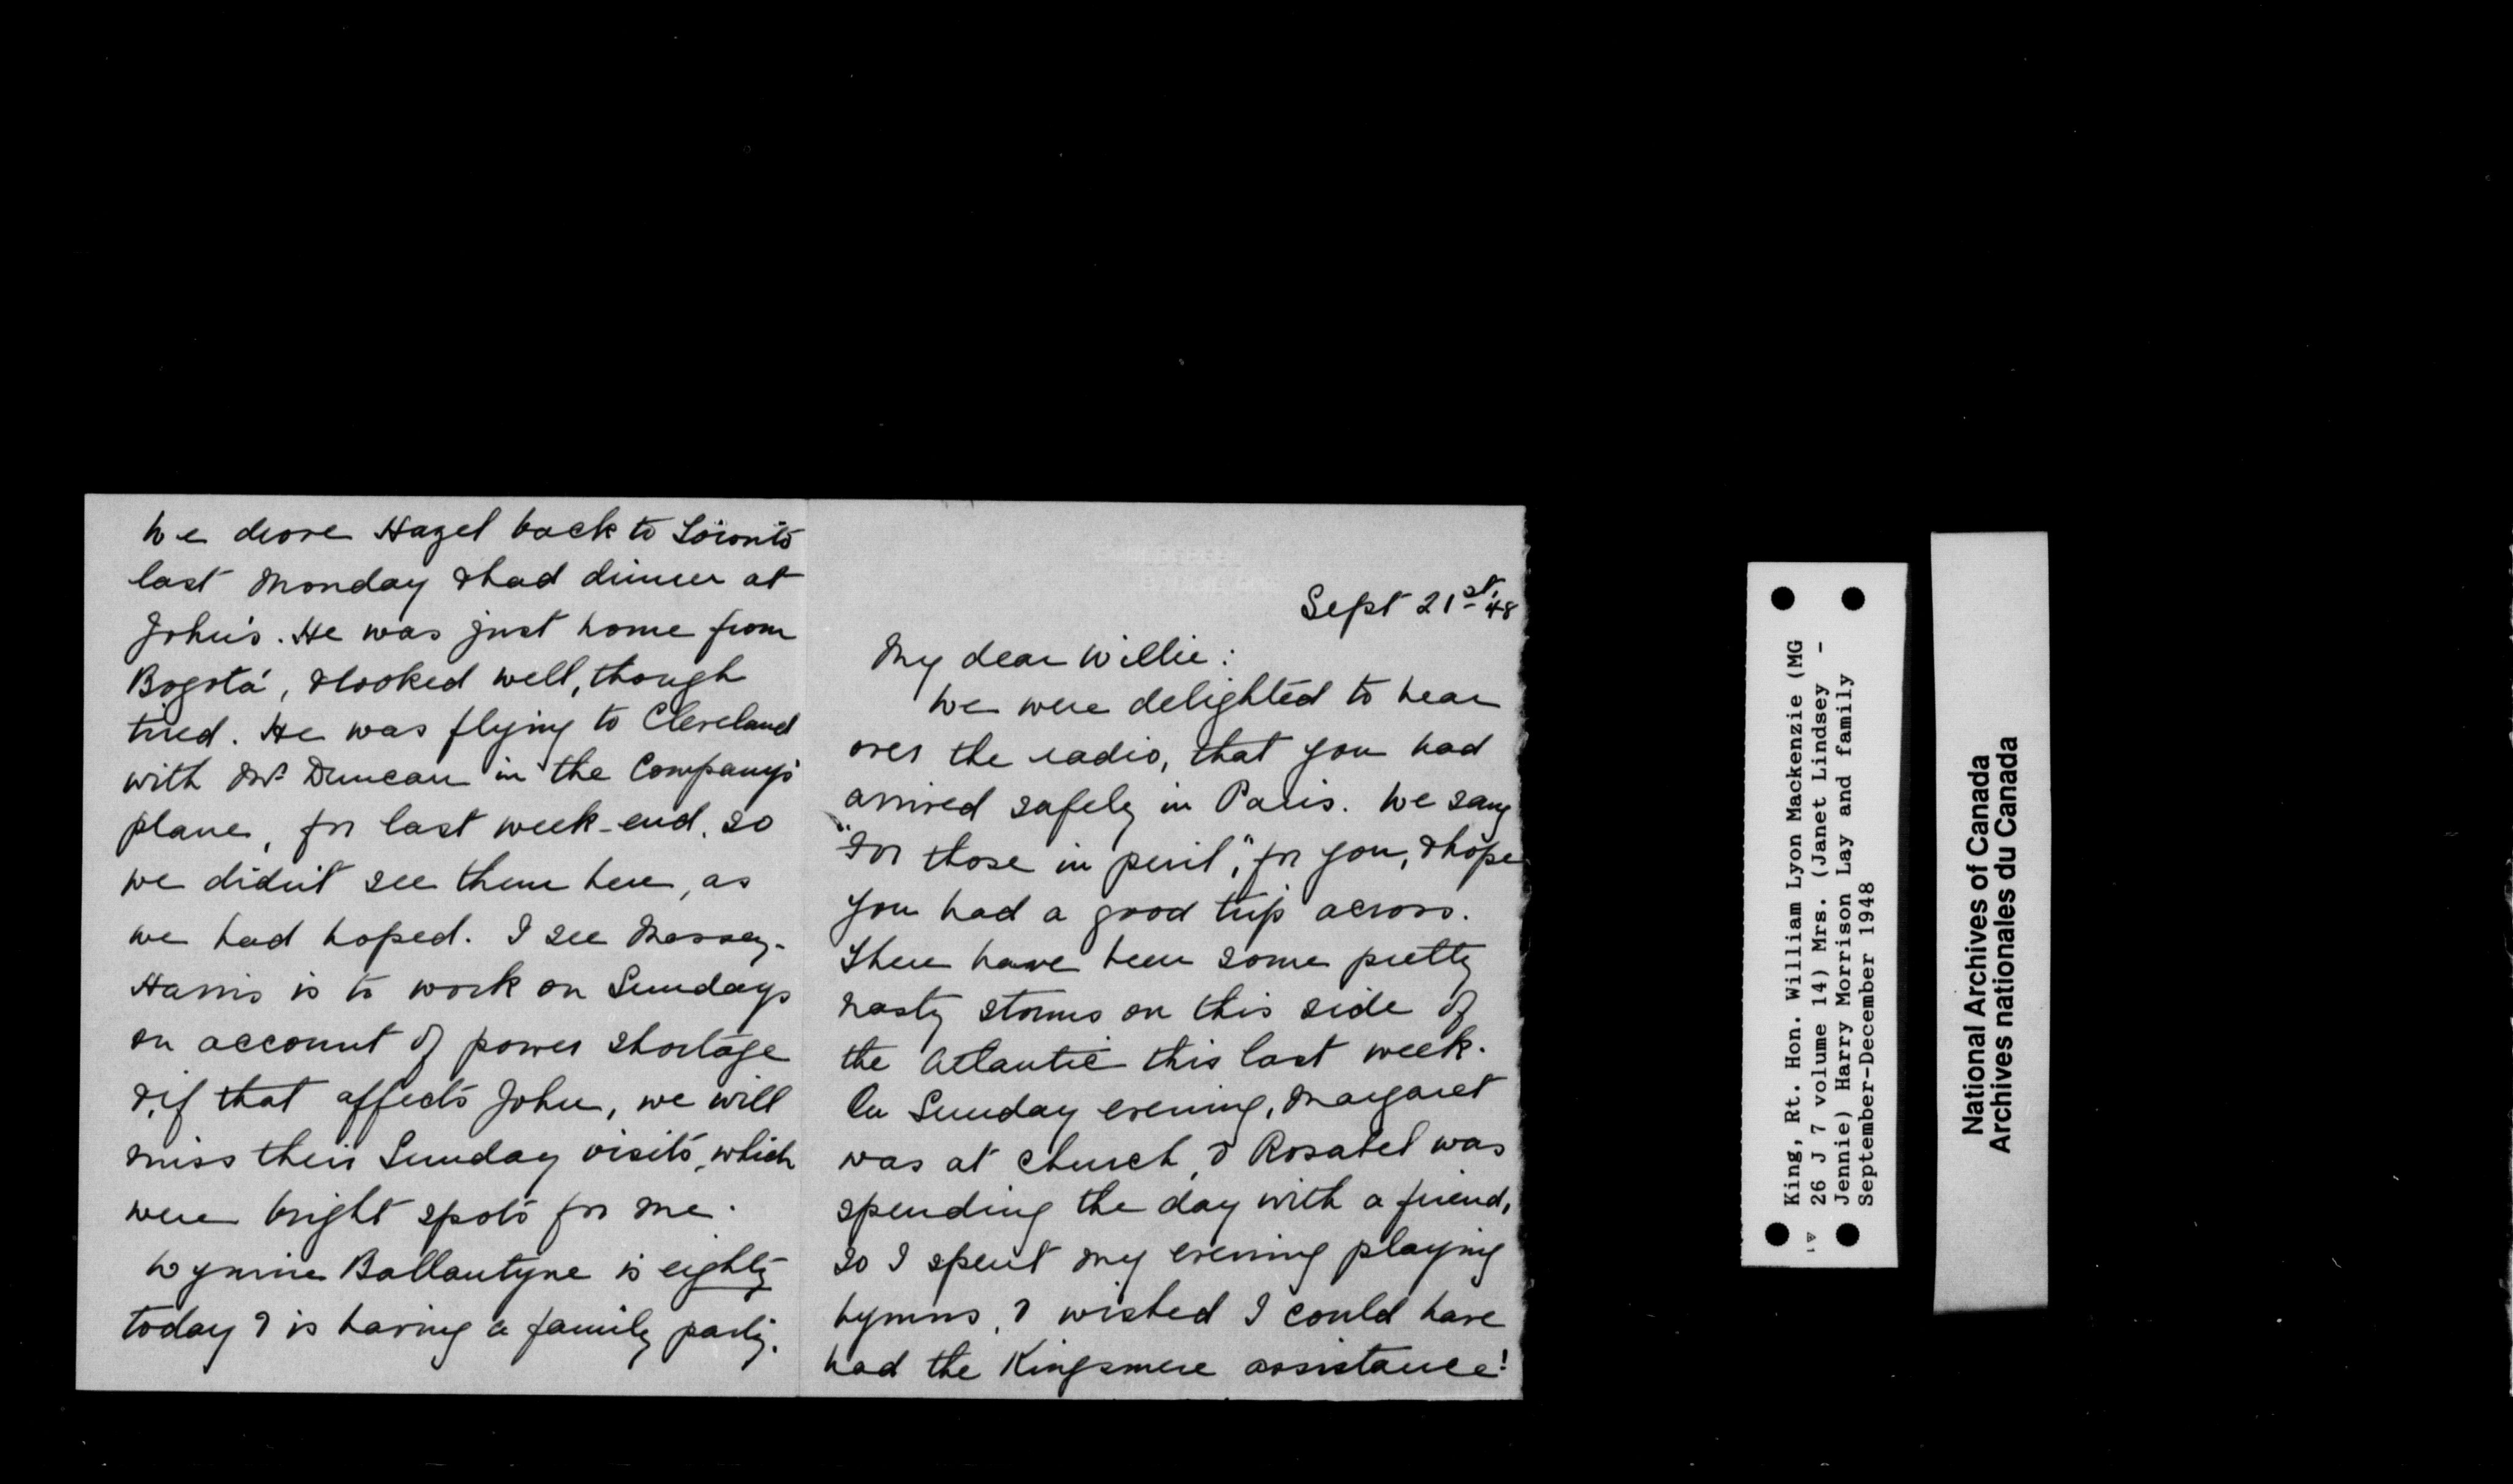 Sept 21st 48
My dear Willie:
We were delighted to hear
over the radio, that you had
arrived safely in Paris. We sang
"For those in peril", for you, & hope
you had a good trip across.
There have been some pretty
nasty storms on this side of
the Atlantic this last week.
On Sunday evening, Margaret
was at church, & Rosabel was
spending the day with a friend,
so I spent my evening playing
hymns, & wished I could have
had the Kingsmere assistance!
We drove Hazel back to Toronto
last Monday & had dinner at
John's. He was just home from
Bogotá, & looked well, though
tired. He was flying to Cleveland
with Mr. Duncan in the Company's
plane, for last week-end, so
we didn't see them here, as
we had hoped. I see Massey-
Harris is to work on Sundays
on account of power shortage
&, if that affects John, we will
miss their Sunday visits, which
were bright spots for me.
Wynnie Ballantyne is eighty
today & is having a family party.
King, Rt. Hon. William Lyon Mackenzie (MG
26 J 7 volume 14) Mrs. (Janet Lindsey -
Jennie) Harry Morrison Lay and family
September-December 1948
National Archives of Canada
Archives nationales du Canada